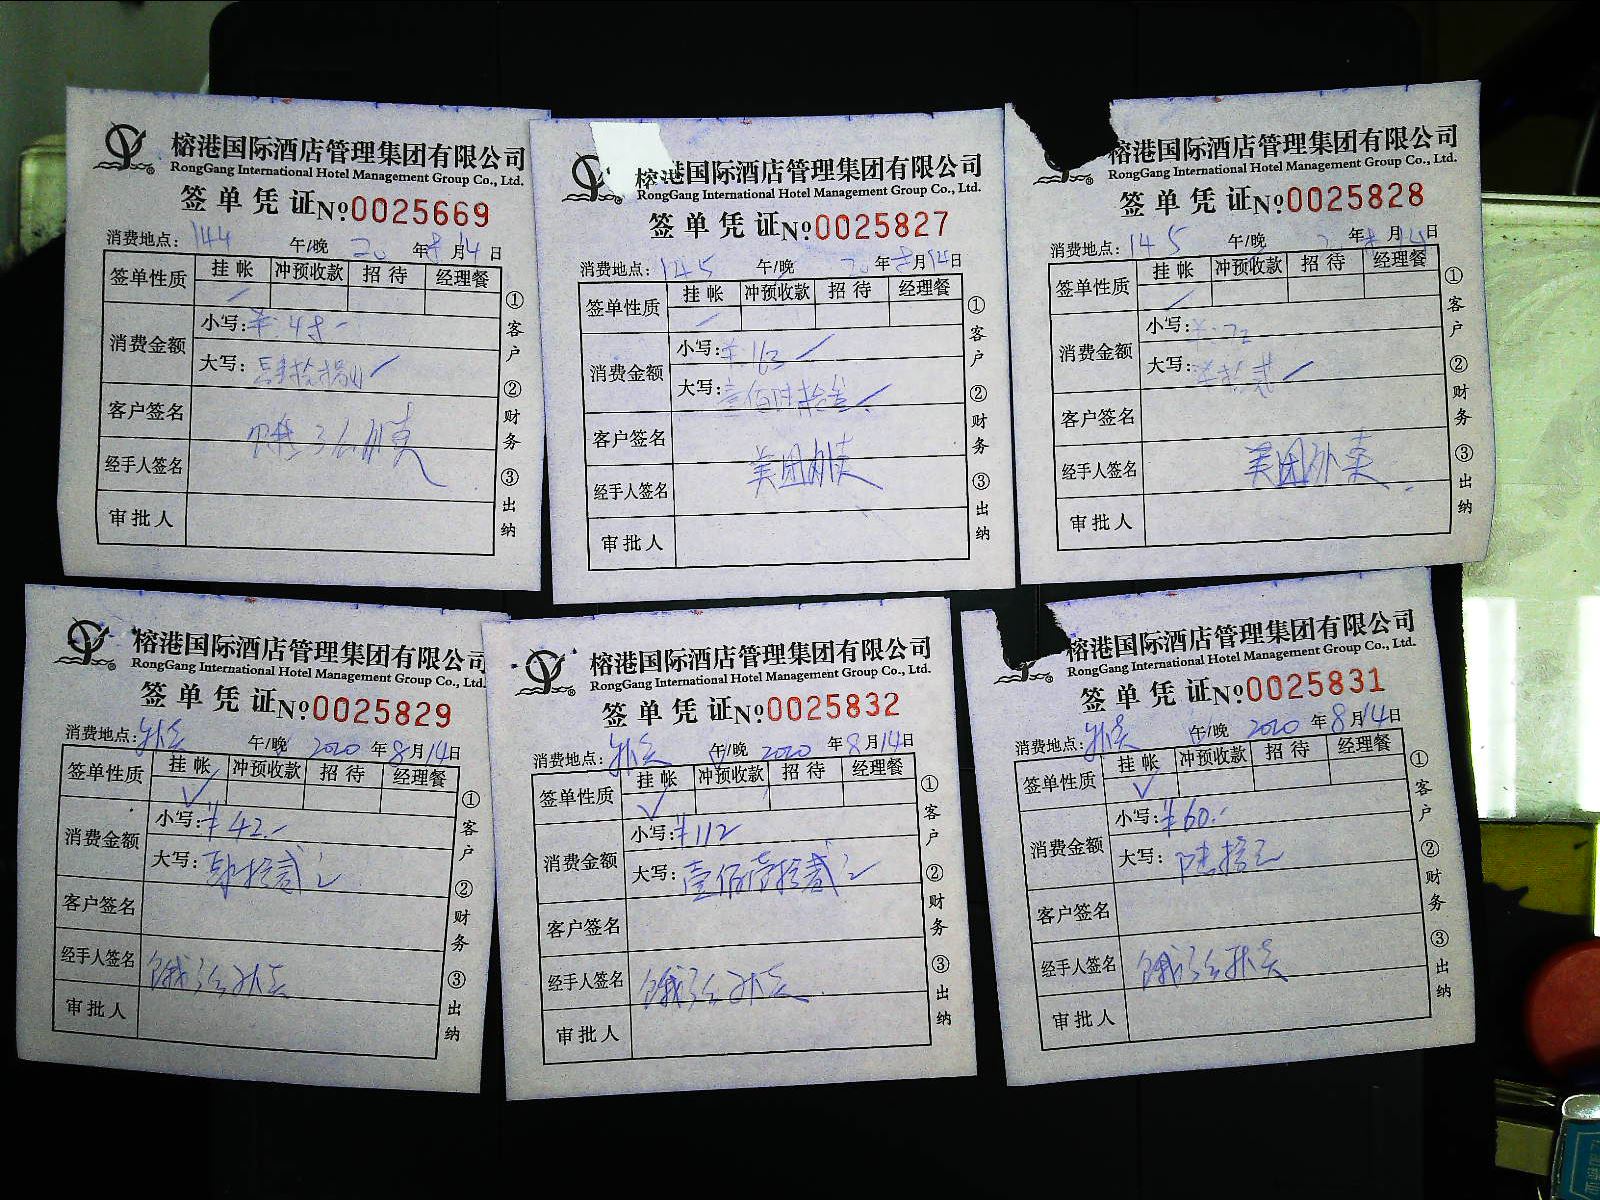 榕港国际酒店管理集团有限公司
RongGang International Hotel Management Group Co., Ltd.
签单凭证№0025669
消费地点：144 午/晚 20年8月14日
签单性质 挂帐 冲预收款 招待 经理餐
消费金额 小写:¥:48-
大写：肆拾捌
客户签名
经手人签名
审批人
①客户 ②财务 ③出纳
榕港国际酒店管理集团有限公司
RongGang International Hotel Management Group Co., Ltd.
签单凭证№0025827
消费地点：145 午/晚 20年8月14日
签单性质 挂帐 冲预收款 招待 经理餐
消费金额 小写:¥:163
大写：壹佰陆拾叁
客户签名
经手人签名 美团外卖
审批人
①客户 ②财务 ③出纳
榕港国际酒店管理集团有限公司
RongGang International Hotel Management Group Co., Ltd.
签单凭证№0025828
消费地点：145 午/晚 20年8月14日
签单性质 挂帐 冲预收款 招待 经理餐
消费金额 小写:¥:72
大写：柒拾贰
客户签名
经手人签名 美团外卖
审批人
①客户 ②财务 ③出纳
榕港国际酒店管理集团有限公司
RongGang International Hotel Management Group Co., Ltd.
签单凭证№0025829
消费地点：外卖 午/晚 2020年8月14日
签单性质 挂帐 冲预收款 招待 经理餐
消费金额 小写:¥42.-
大写：肆拾贰元
客户签名
经手人签名 饿了么外卖
审批人
①客户 ②财务 ③出纳
榕港国际酒店管理集团有限公司
RongGang International Hotel Management Group Co., Ltd.
签单凭证№0025832
消费地点：外卖 午/晚 2020年8月14日
签单性质 挂帐 冲预收款 招待 经理餐
消费金额 小写:¥112
大写：壹佰壹拾贰元
客户签名
经手人签名 饿了么外卖
审批人
①客户 ②财务 ③出纳
榕港国际酒店管理集团有限公司
RongGang International Hotel Management Group Co., Ltd.
签单凭证№0025831
消费地点：外卖 午/晚 2020年8月14日
签单性质 挂帐 冲预收款 招待 经理餐
消费金额 小写:¥60.-
大写：陆拾元
客户签名
经手人签名 饿了么外卖
审批人
①客户 ②财务 ③出纳